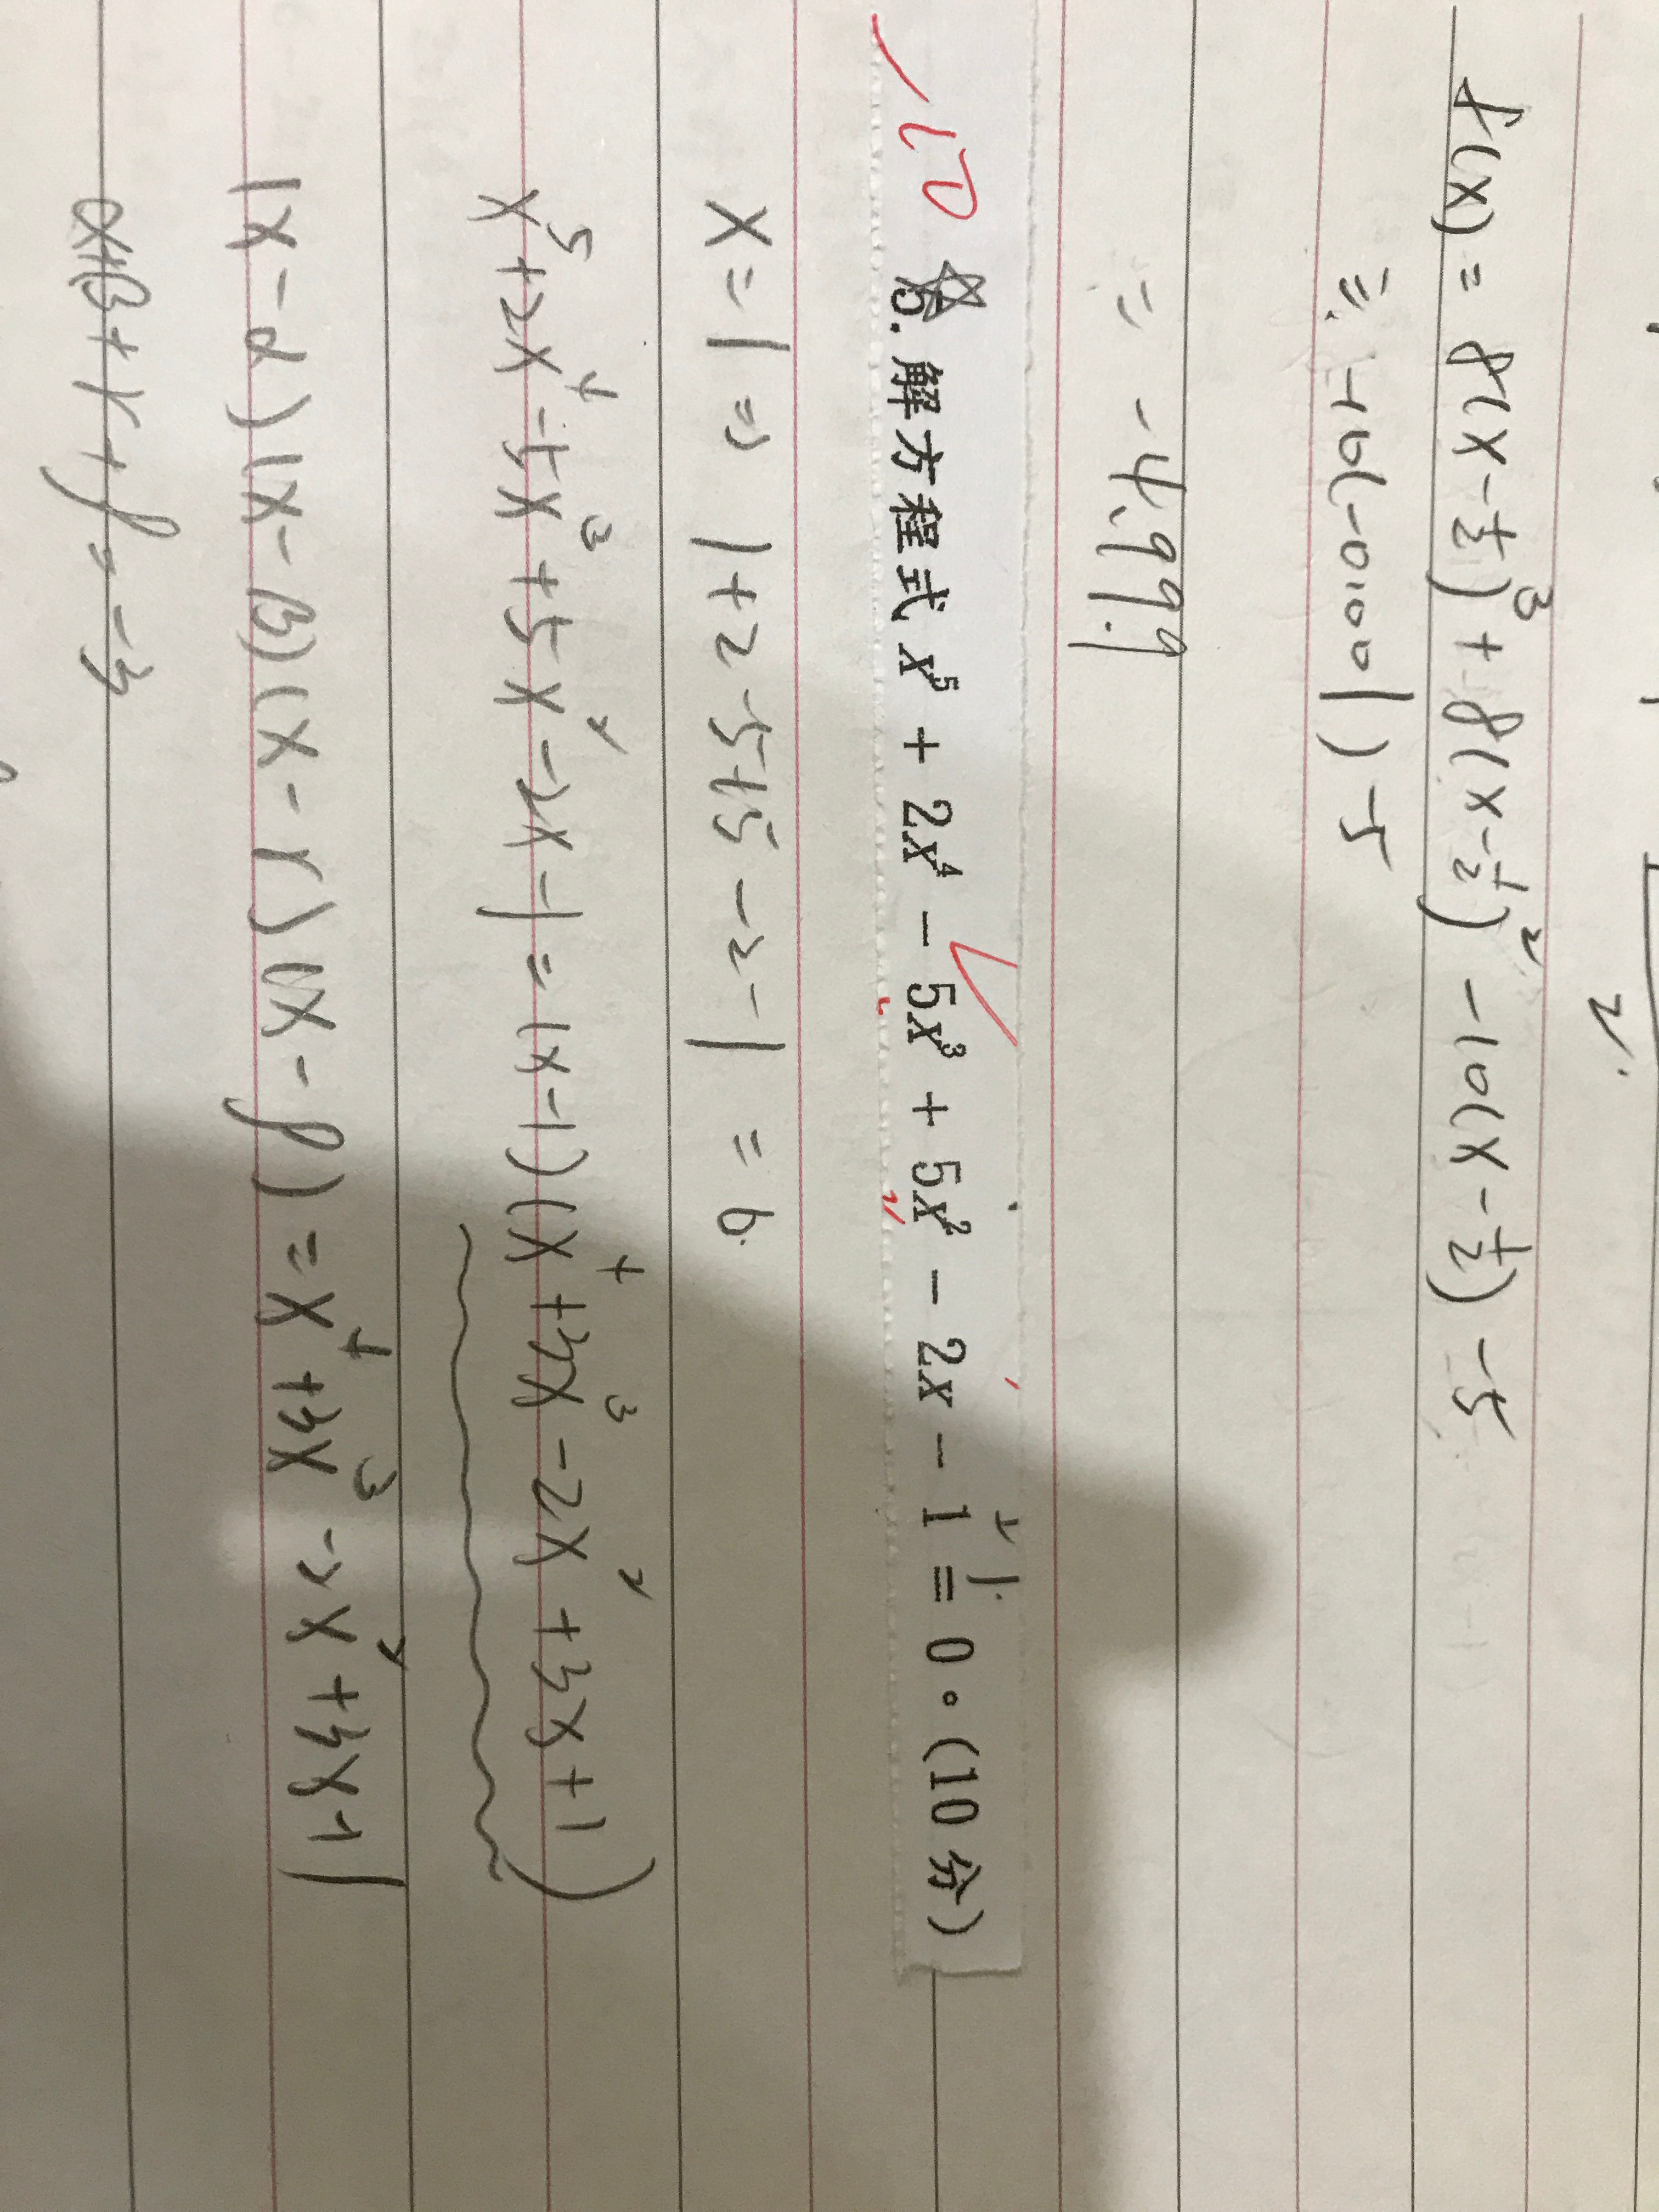 2.
f(x) = 8(x-1/2)³ + 8(x-1/2)² - 10(x-1/2) - 5
≒ -10(-0.001) - 5
= -4.99
-10 ☆ 5. 解方程式 x⁵ + 2x⁴ - 5x³ + 5x² - 2x - 1 = 0。(10 分)
x = 1 ⇒ 1+2-5+5-2-1 = 0.
x⁵+2x⁴-5x³+5x²-2x-1 = (x-1)(x⁴+3x³-2x²+3x+1)
(x-α)(x-β)(x-γ)(x-δ) = x⁴+3x³-2x²+3x+1
α+β+γ+δ = -3